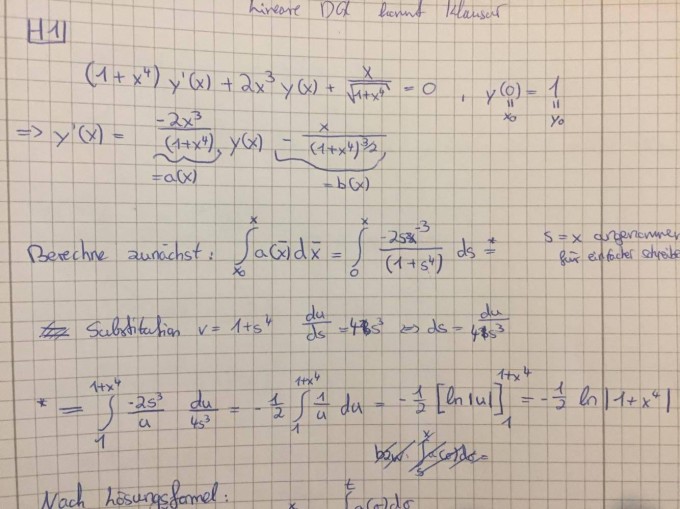 Lineare DGL kommt Klausur
H1
(1+x⁴) y'(x) + 2x³ y(x) + x/√(1+x⁴) = 0 , y(0) = 1
x₀ y₀
=> y'(x) = -2x³/(1+x⁴) y(x) - x/(1+x⁴)^(3/2)
=a(x) =b(x)
Berechne zunächst: ∫_{x₀}^{x} a(x̄)dx̄ = ∫_0^x -2s³/(1+s⁴) ds =* s = x angenommen
für einfacher schreiben
Substitution v = 1+s⁴ du/ds = 4s³ ⇔ ds = du/4s³
* = ∫_1^{1+x⁴} -2s³/u du/4s³ = -1/2 ∫_1^{1+x⁴} 1/u du = -1/2 [ln|u|]_1^{1+x⁴} = -1/2 ln|1+x⁴|
Nach Lösungsformel: